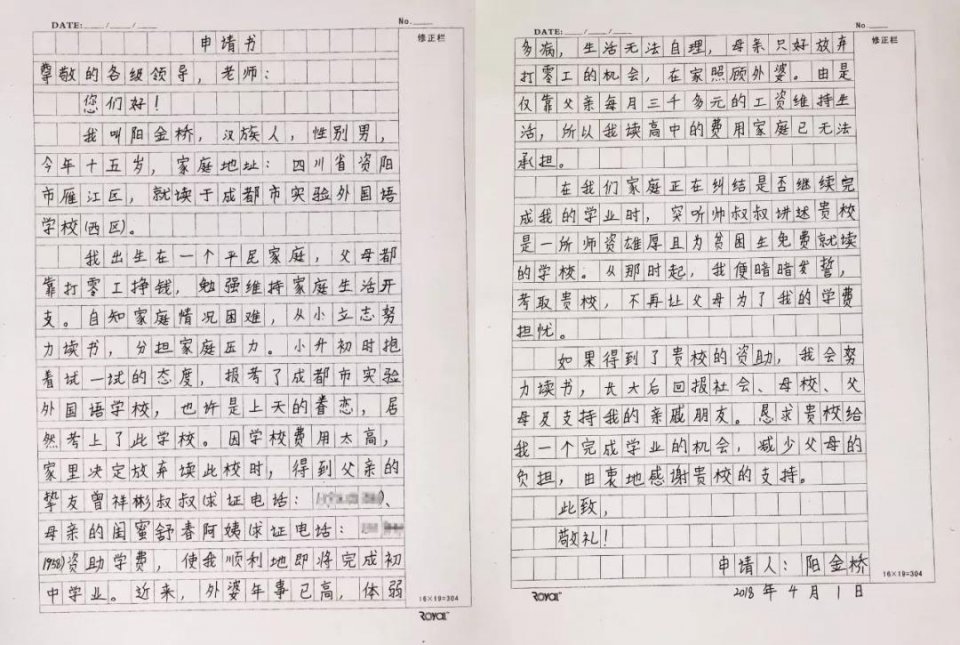 DATE: / /
No.
修正栏
申请书
尊敬的各级领导，老师：
您们好！
我叫阳金桥，汉族人，性别男，
今年十五岁，家庭地址：四川省资阳
市雁江区，就读于成都市实验外国语
学校(西区)。
我出生在一个平民家庭，父母都
靠打零工挣钱，勉强维持家庭生活开
支。自知家庭情况困难，从小立志努
力读书，分担家庭压力。小升初时抱
着试一试的态度，报考了成都市实验
外国语学校，也许是上天的眷恋，居
然考上了此学校。因学校费用太高，
家里决定放弃读此校时，得到父亲的
挚友曾祥彬叔叔(求证电话：)、
母亲的闺蜜舒春阿姨(求证电话：
1958)资助学费，使我顺利地即将完成初
中学业。近来，外婆年事已高，体弱
16×19=304
ROYAL
DATE: / /
No.
修正栏
多病，生活无法自理，母亲只好放弃
打零工的机会，在家照顾外婆。由是
仅靠父亲每月三千多元的工资维持生
活，所以我读高中的费用家庭已无法
承担。
在我们家庭正在纠结是否继续完
成我的学业时，突听帅叔叔讲述贵校
是一所师资雄厚且为贫困生免费就读
的学校。从那时起，我便暗暗发誓，
考取贵校，不再让父母为了我的学费
担忧。
如果得到了贵校的资助，我会努
力读书，长大后回报社会、母校、父
母及支持我的亲戚朋友。恳求贵校给
我一个完成学业的机会，减少父母的
负担，由衷地感谢贵校的支持。
此致，
敬礼！
申请人：阳金桥
2018年4月1日
16×19=304
ROYAL